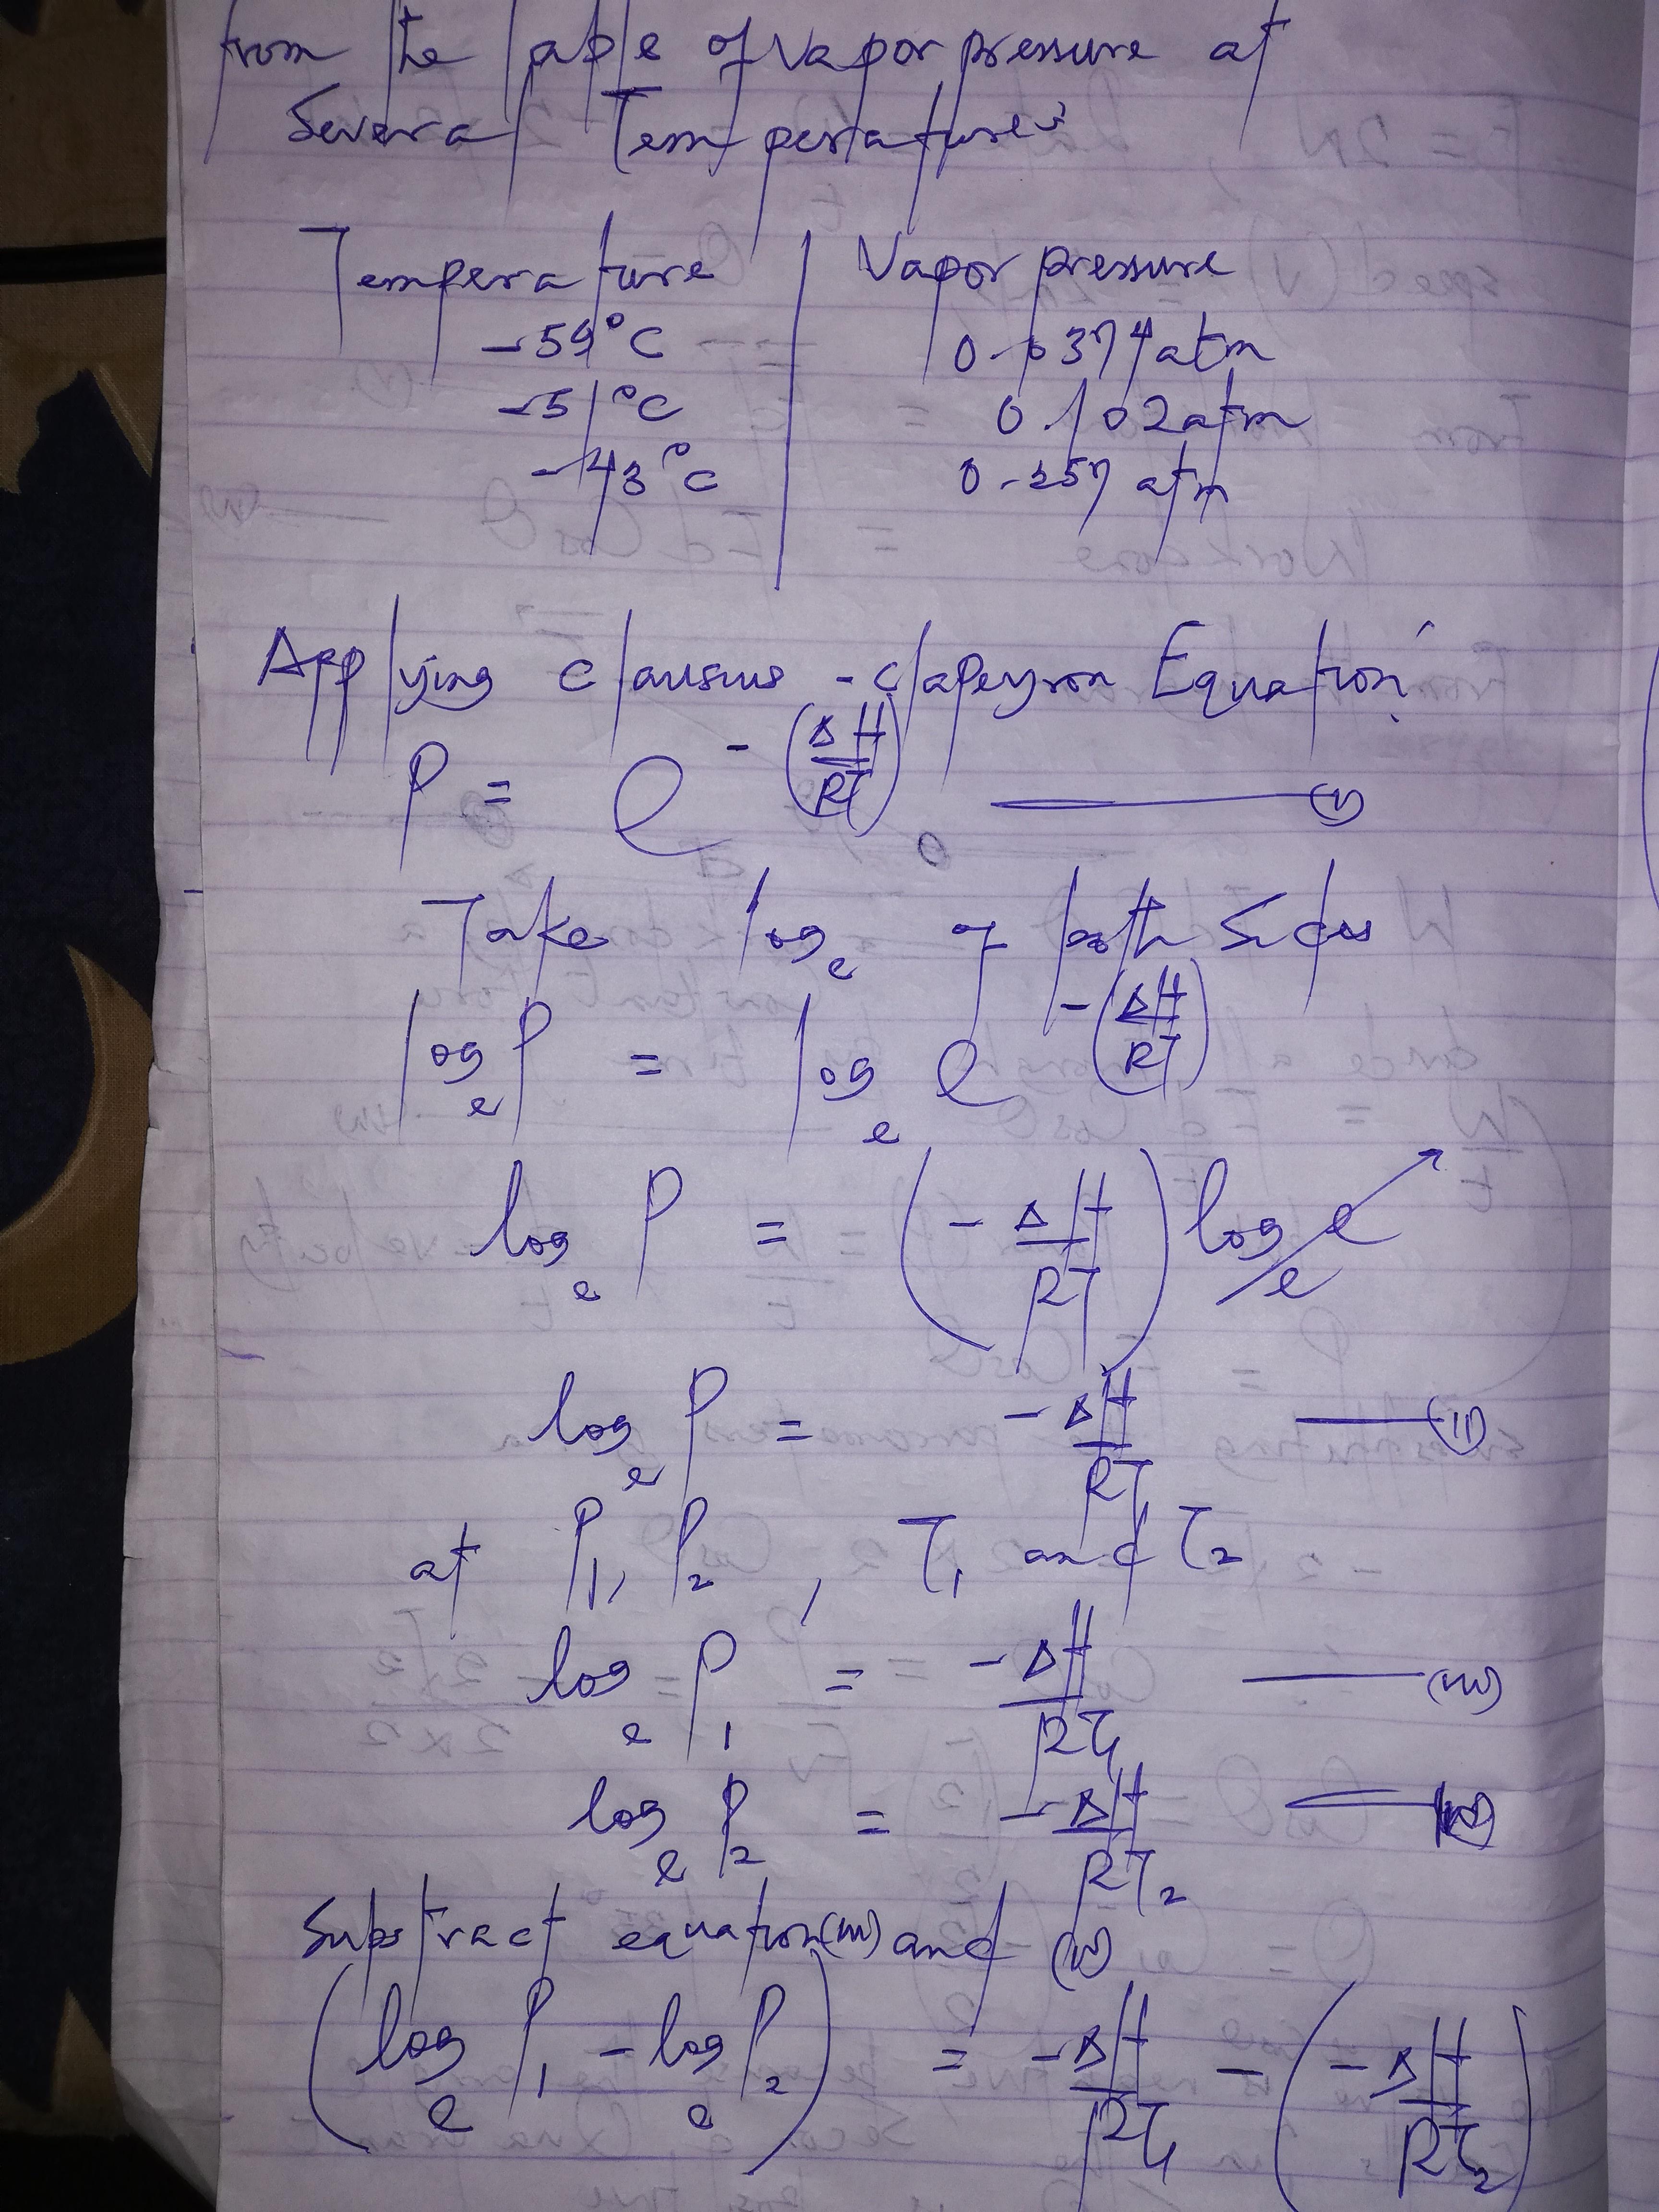 from the table of vapor pressure at
Several Temperatures
Temperature | Vapor pressure
-59°C 0.0374 atm
-51°C 0.102 atm
-43°C 0.257 atm
Applying clausius - clapeyron Equation
P = e^-(ΔH/RT) ——— (i)
Take log_e of both Sides
log_e P = log_e e^-(ΔH/RT)
log_e P = (-ΔH/RT) log_e e
log_e P = -ΔH/RT ——— (ii)
at P1, P2, T1 and T2
log_e P1 = -ΔH/RT1 ——— (iii)
log_e P2 = -ΔH/RT2 ———
Substract equation (iii) and (iv)
(log_e P1 - log_e P2) = -ΔH/RT1 - (-ΔH/RT2)